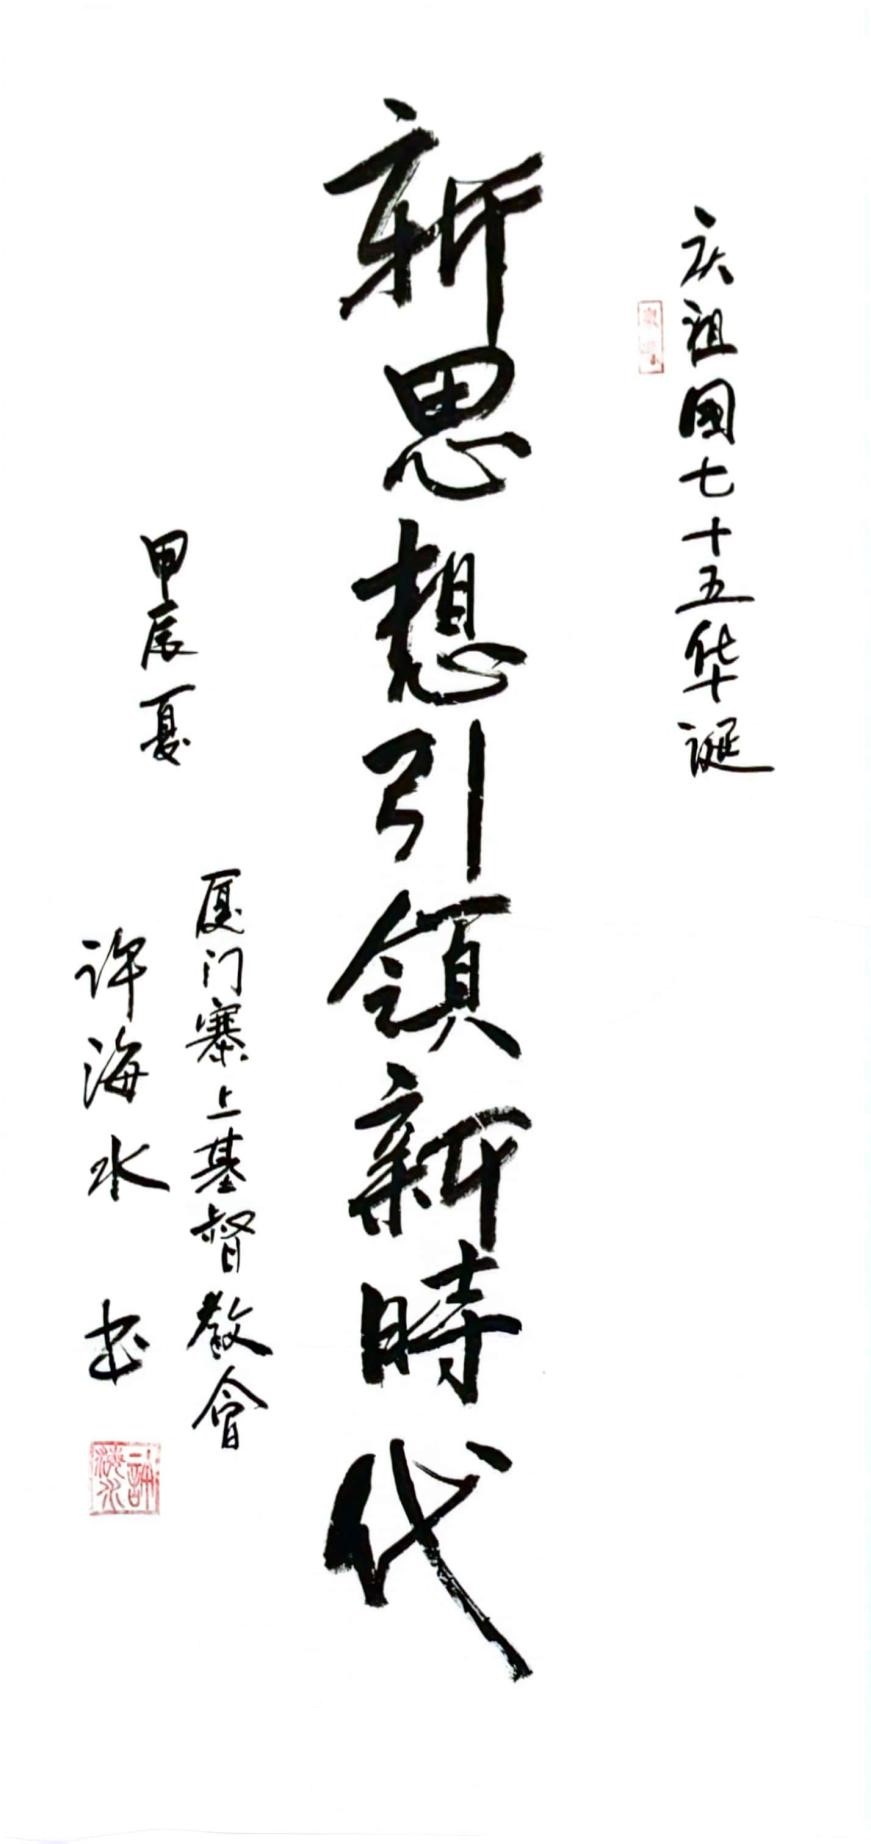 庆祖国七十五华诞
新思想引領新時代
甲辰夏
厦门寨上基督教會
许海水 书
許海水